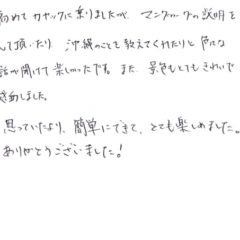 初めてカヤックに乗りましたが、マングローブの説明を
して頂いたり、沖縄のことを教えてくれたりと色々な
話が聞けて楽しかったです。また、景色もとてもきれいで
感動しました。
思っていたより、簡単にできて、とても楽しめました。
ありがとうございました!